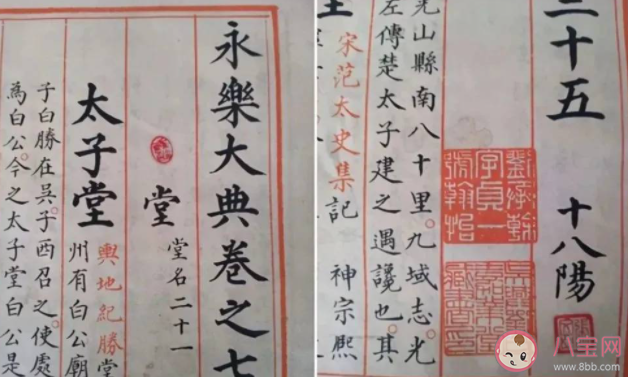 永樂大典卷之七
堂 堂名二十一
太子堂
輿地紀勝堂
州有白公廟
子白勝在吳。子西召之。使處
為白公。今之太子堂白公是
二十五 十八陽
劉承榦
字貞一
號翰怡
光山縣南八十里。九域志。光
左傳楚太子建之遇讒也。其
宋范太史集記 神宗熙
八宝网
www.8bb.com